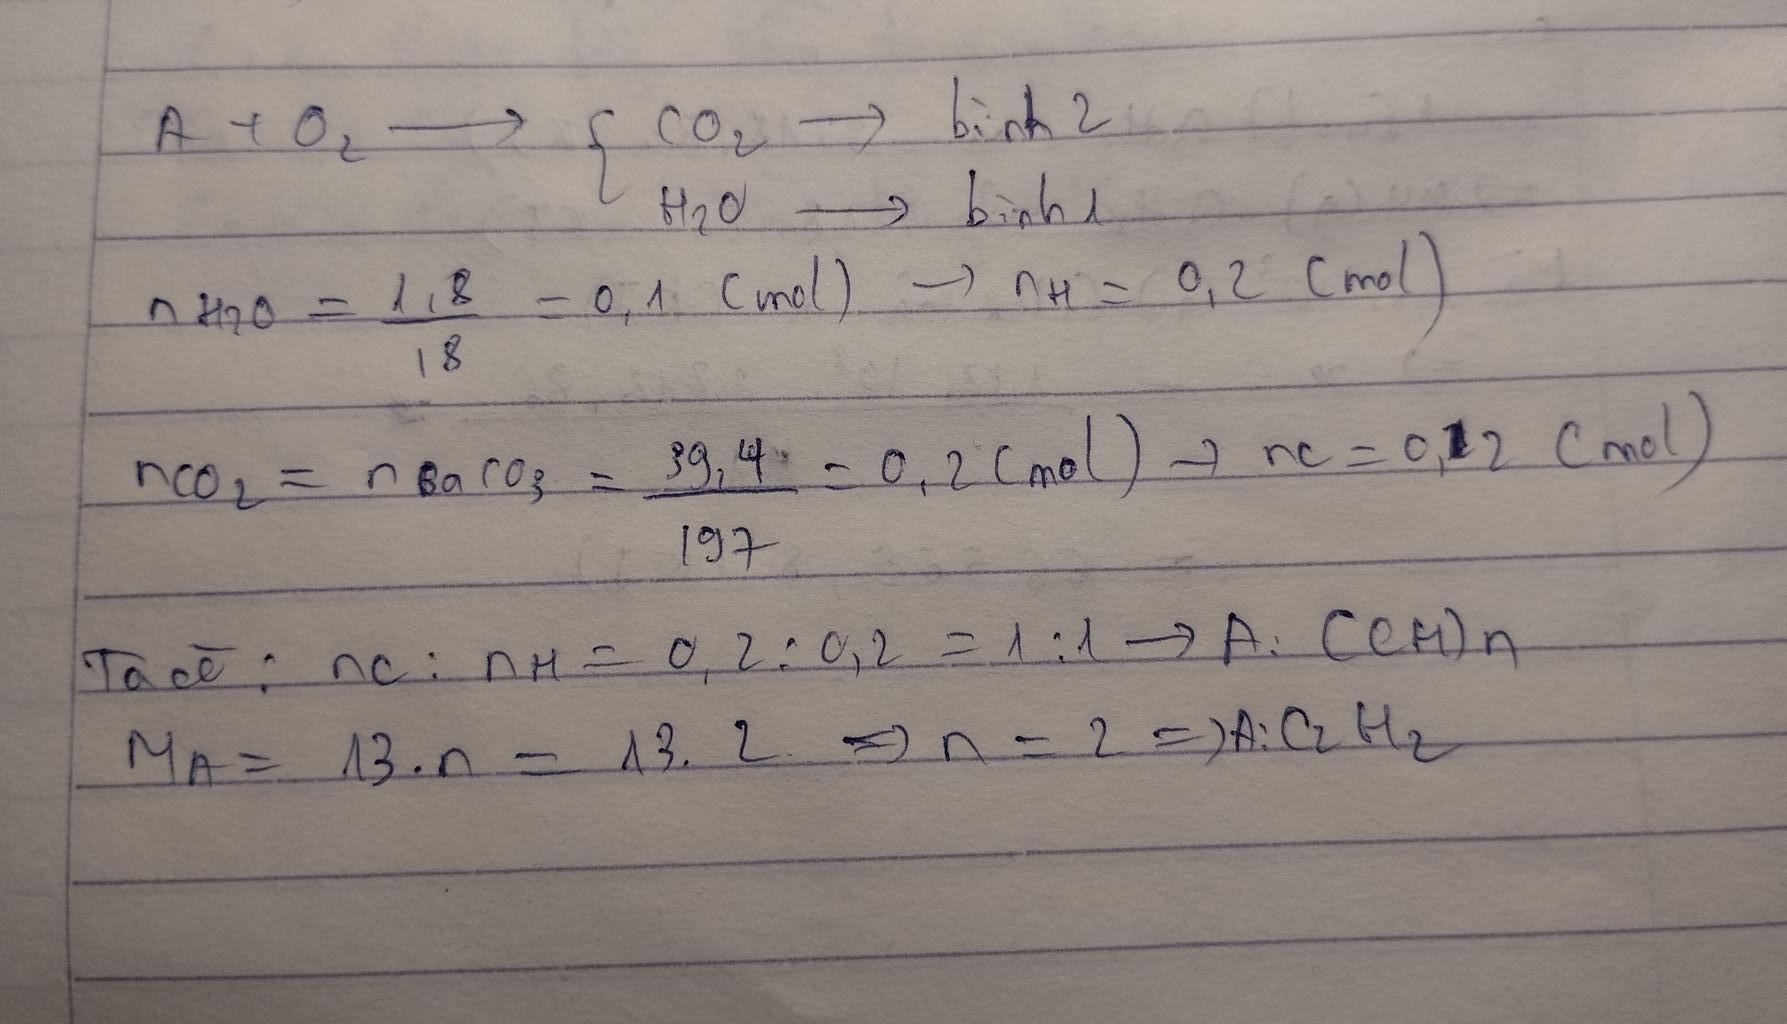 A + O₂ → { CO₂ → bình 2
H₂O → bình 1
nH₂O = 1,8/18 = 0,1 (mol) → nH = 0,2 (mol)
nCO₂ = nBaCO₃ = 39,4/197 = 0,2 (mol) → nC = 0,2 (mol)
Ta có : nC : nH = 0,2 : 0,2 = 1 : 1 → A : (CH)n
MA = 13.n = 13.2 => n = 2 => A: C₂H₂